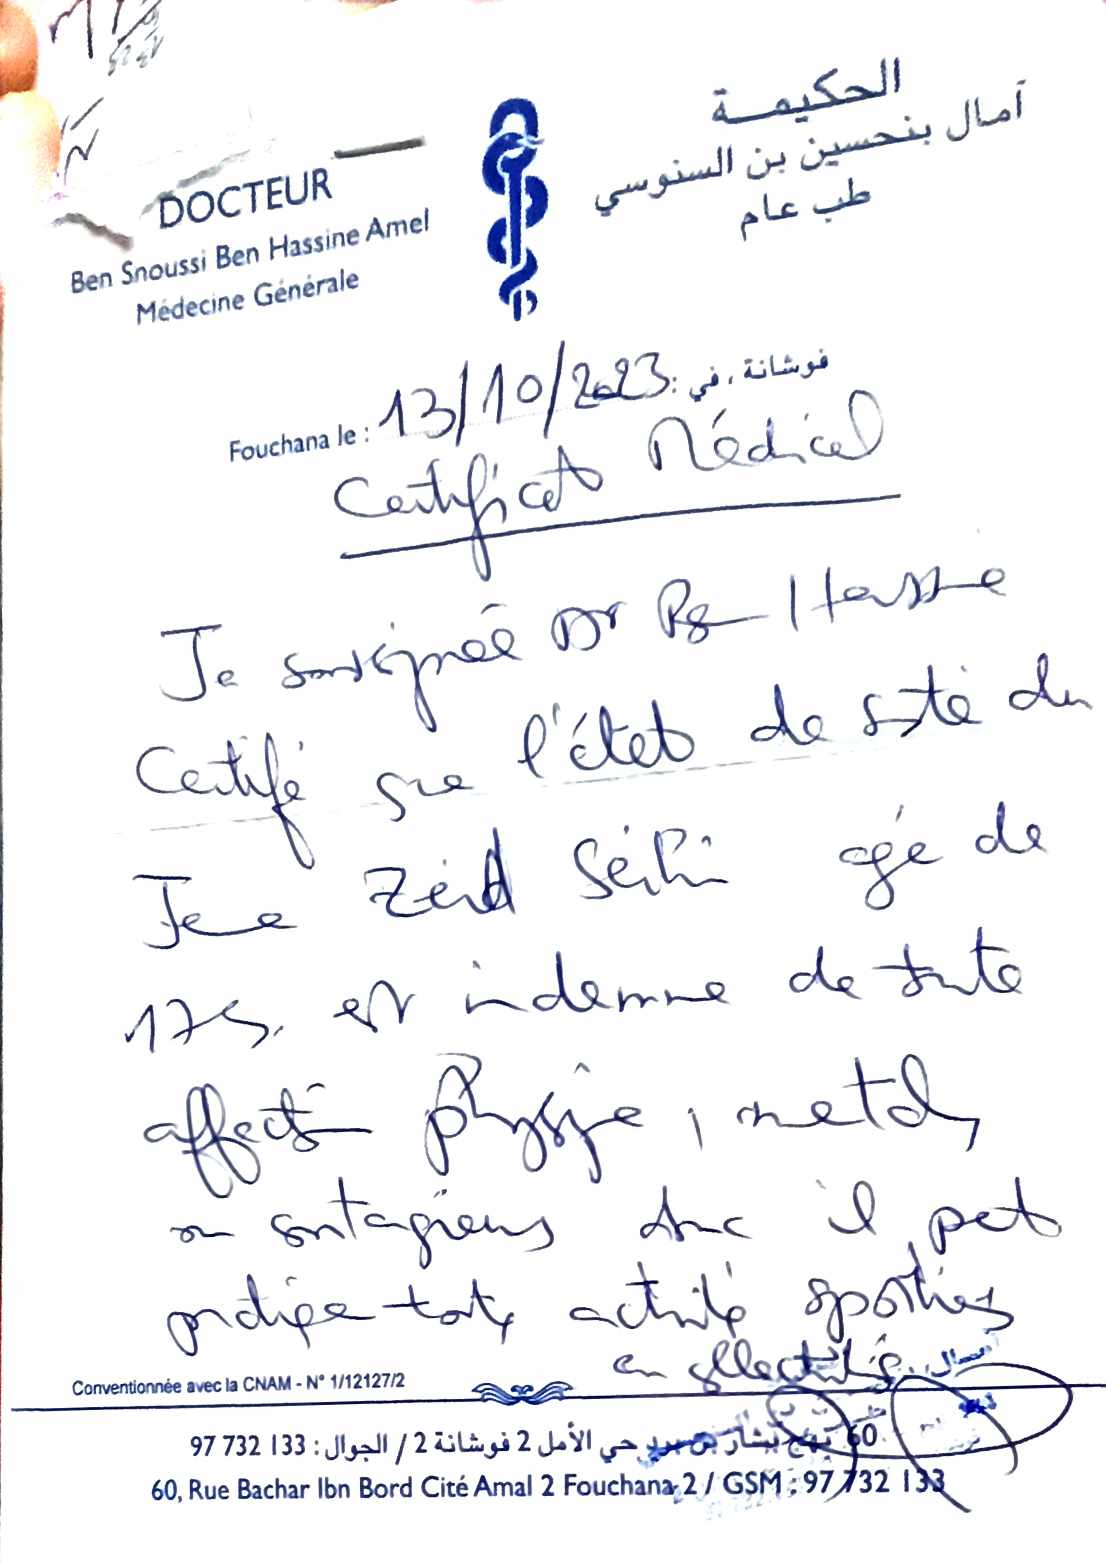 الحكيمة
آمال بنحسين بن السنوسي
طب عام
DOCTEUR
Ben Snoussi Ben Hassine Amel
Médecine Générale
فوشانة ، في :
Fouchana le : 13/10/2023
Certificat Médical
Je soussignée Dr Ben Hassine
Certifié que l'état de santé du
Jeune Zeid agé de
17 est indemne de toute
affection physique, mental,
ou contagieuse donc il peut
pratiquer toute activité sportives
en collectivité
Conventionnée avec la CNAM - N° 1/12127/2
60 نهج بشار بن برد حي الأمل 2 فوشانة 2 / الجوال : 133 732 97
60, Rue Bachar Ibn Bord Cité Amal 2 Fouchana 2 / GSM : 97 732 133